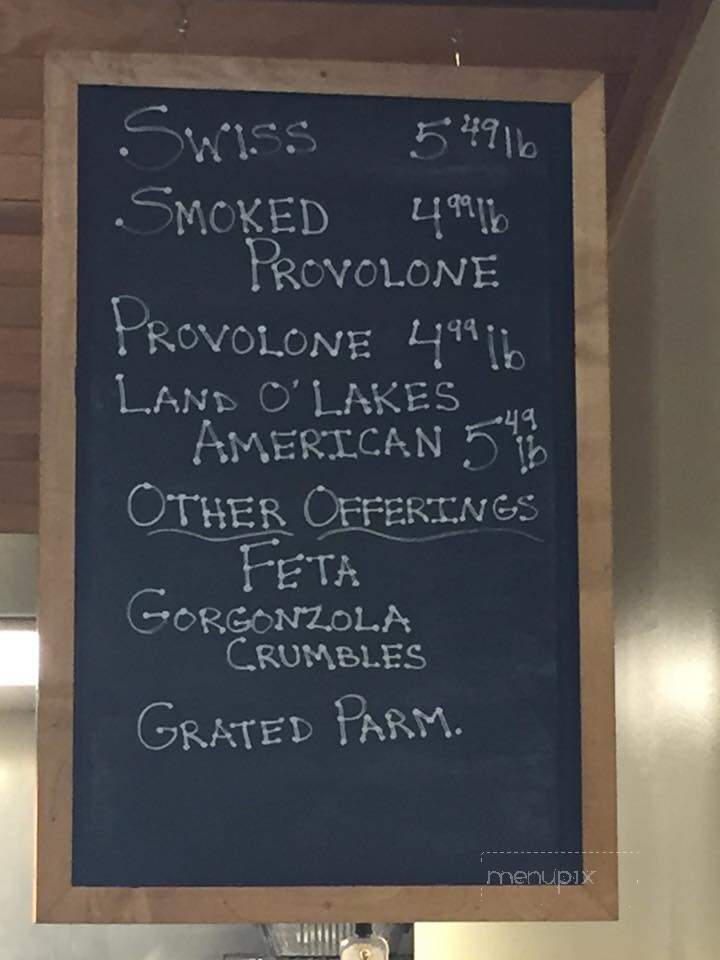 Swiss 5 49 lb
Smoked 4 99 lb
Provolone
Provolone 4 99 lb
Land O' Lakes
American 5 49 lb
Other Offerings
Feta
Gorgonzola
Crumbles
Grated Parm.
menupix